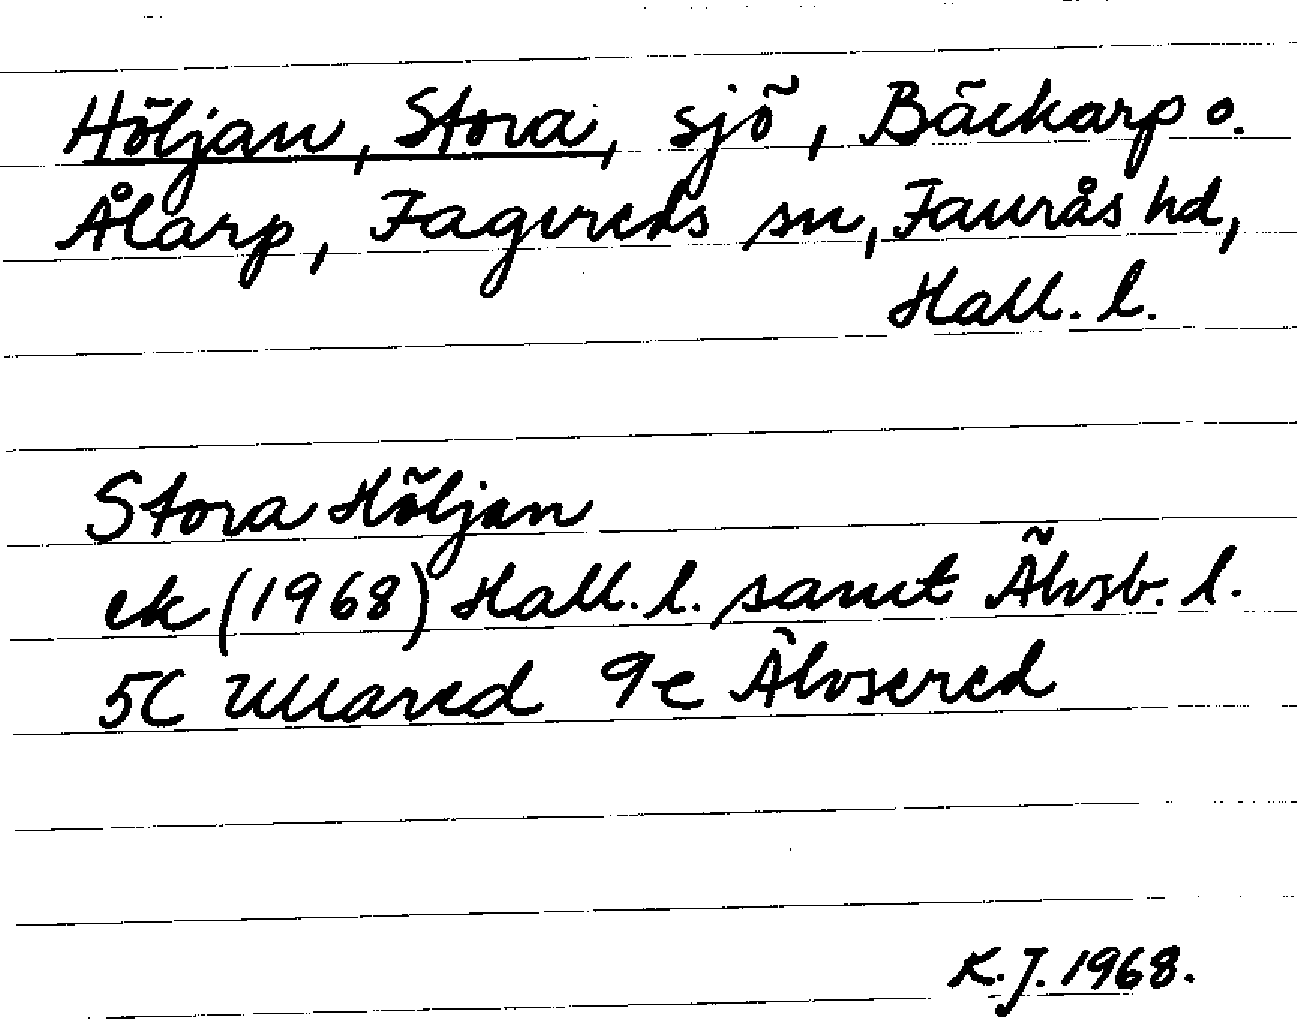 Höljan, Stora, sjö, Bäckarp o.
Ålarp, Fagereds sn, Faurås hd,
Hall. l.
Stora Höljan
ek (1968) Hall. l. samt Älvsb. l.
5C Ullared 9e Älvsered
K.J. 1968.